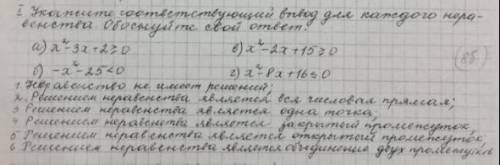 I Укажите соответствующий вывод для каждого нера-
венства. Обоснуйте свой ответ.
а) x²-3x+2≥0 в) x²-2x+15≥0
б) -x²-25<0 г) x²-8x+16≤0 (8б.)
1. Неравенство не имеет решений;
2. Решением неравенства является вся числовая прямая;
3 Решением неравенства является одна точка;
4 Решением неравенства является закрытый промежуток
5 Решением неравенства является открытый промежуток
6 Решением неравенства является объединение двух промежутков